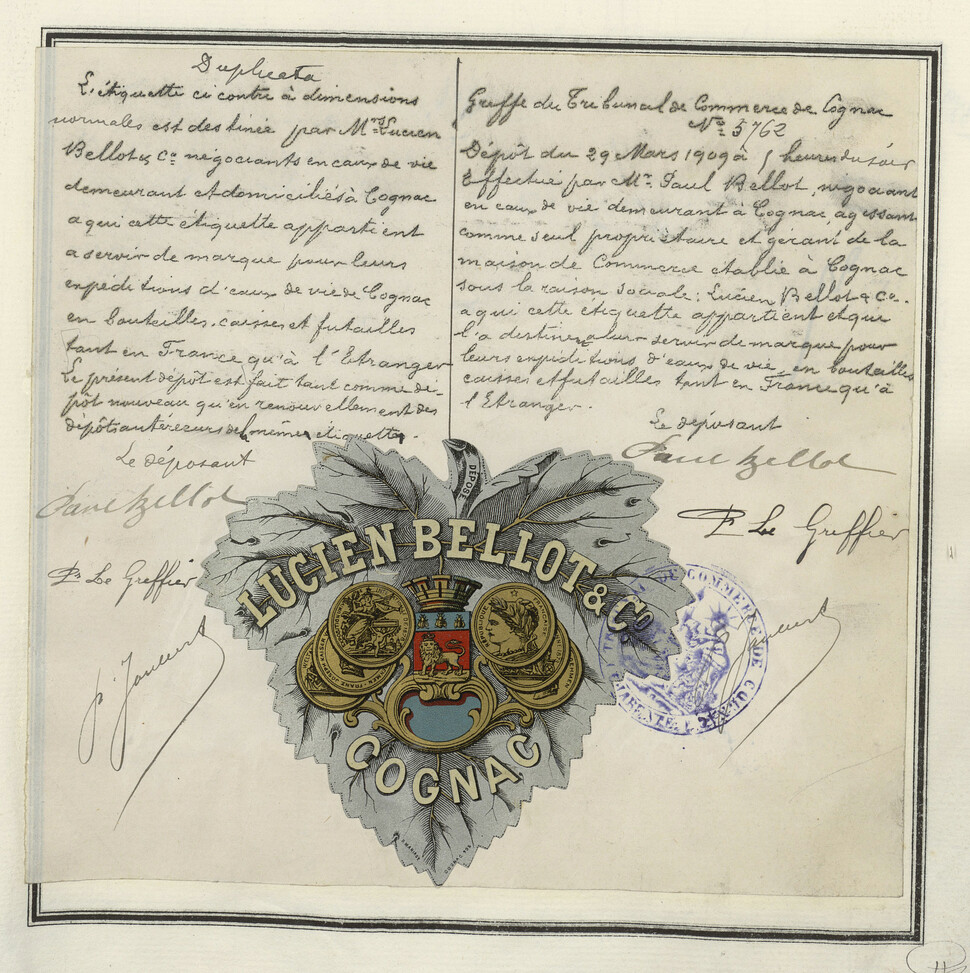 Duplicata
L'étiquette ci contre à dimensions
normales est destinée par Mrs Lucien
Bellot & Co négociants en eaux de vie
demeurant et domiciliés à Cognac
a qui cette étiquette appartient
a servir de marque pour leurs
expéditions d'eaux de vie de Cognac
en bouteilles, caisses et futailles
tant en France qu'à l'Etranger
Le présent dépôt est fait tant comme dé-
pôt nouveau qu'en renouvellement des
dépôts antérieurs de la même étiquette.
Le déposant
Paul Bellot
Pr Le Greffier
Greffe du Tribunal de Commerce de Cognac
No 5762
Dépôt du 29 Mars 1909 à 5 heures du soir
Effectué par Mr. Paul Bellot, négociant
en eaux de vie demeurant à Cognac, agissant
comme seul propriétaire et gérant de la
maison de Commerce établie à Cognac
sous la raison sociale: Lucien Bellot & Co.
a qui cette étiquette appartient et qui
l'a destinée à leur servir de marque pour
leurs expéditions d'eaux de vie, en bouteilles
caisses et futailles tant en France qu'à
l'Etranger.
Le déposant
Paul Bellot
Pr Le Greffier
DÉPOSÉ
LUCIEN BELLOT & Co
COGNAC
COMMERCE DE
11